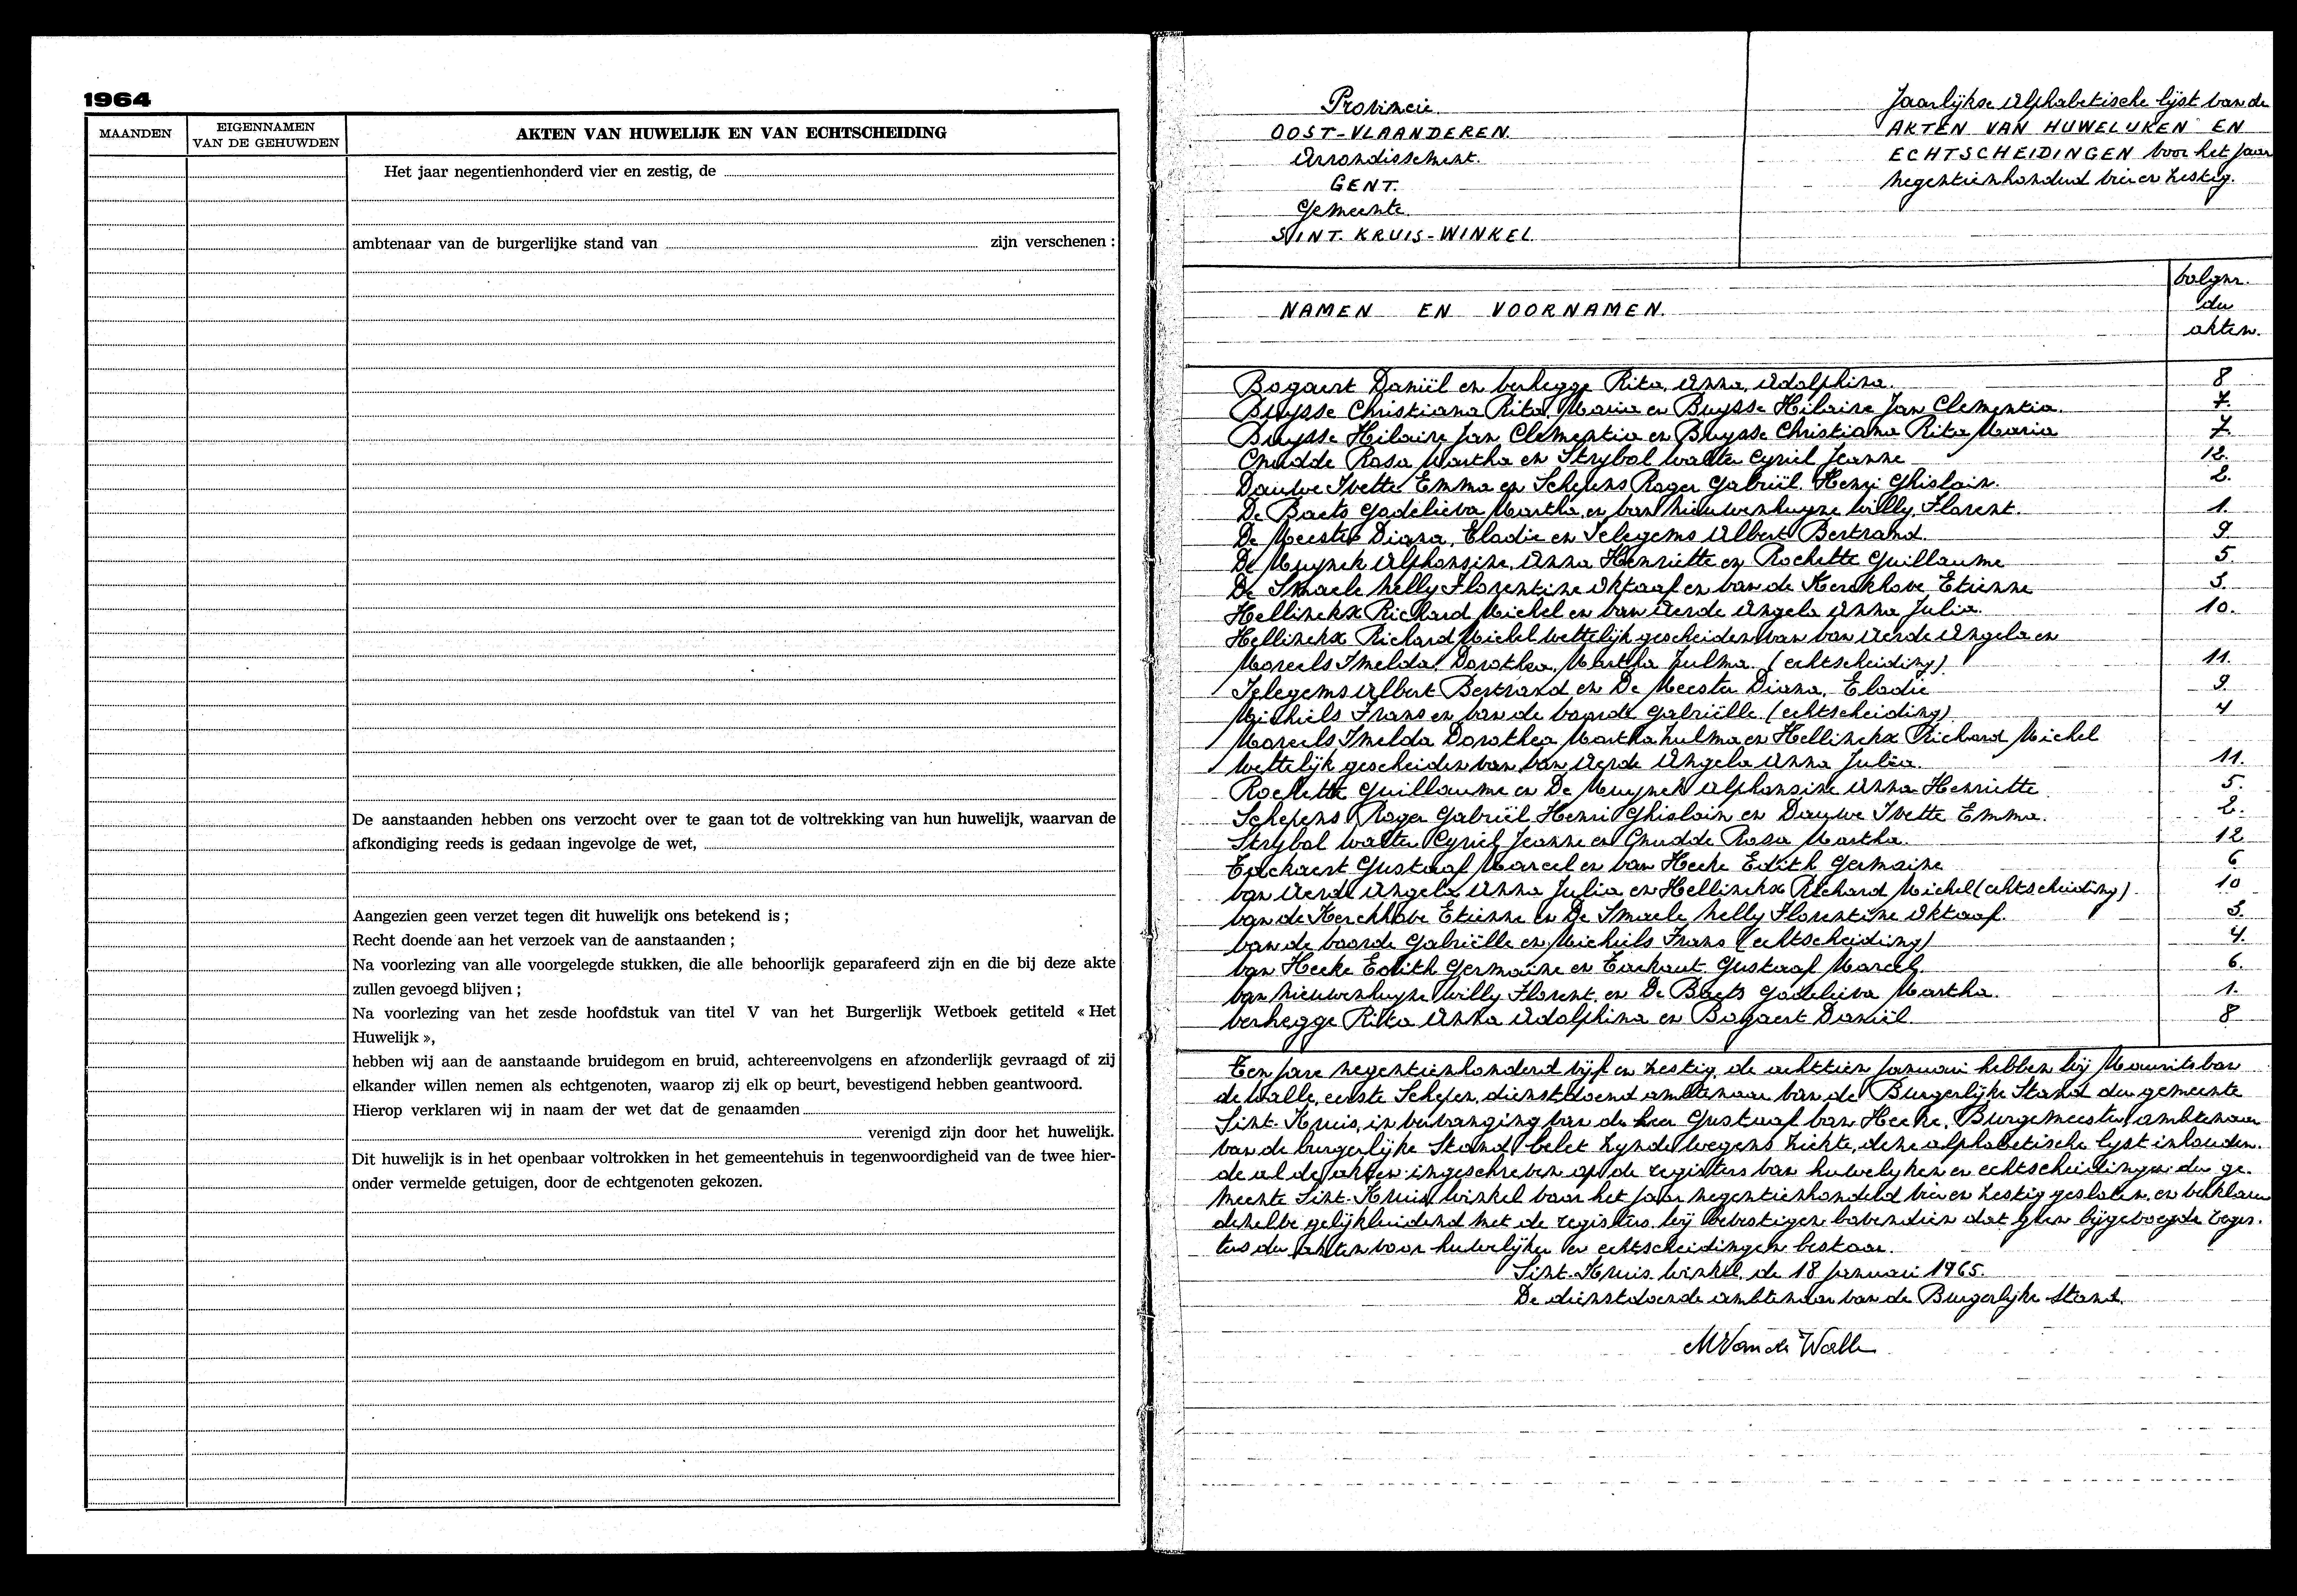 1964
MAANDEN
EIGENNAMEN
VAN DE GEHUWDEN
AKTEN VAN HUWELIJK EN VAN ECHTSCHEIDING
Het jaar negentienhonderd vier en zestig, de
ambtenaar van de burgerlijke stand van zijn verschenen :
De aanstaanden hebben ons verzocht over te gaan tot de voltrekking van hun huwelijk, waarvan de
afkondiging reeds is gedaan ingevolge de wet,
Aangezien geen verzet tegen dit huwelijk ons betekend is ;
Recht doende aan het verzoek van de aanstaanden ;
Na voorlezing van alle voorgelegde stukken, die alle behoorlijk geparafeerd zijn en die bij deze akte
zullen gevoegd blijven ;
Na voorlezing van het zesde hoofdstuk van titel V van het Burgerlijk Wetboek getiteld « Het
Huwelijk »,
hebben wij aan de aanstaande bruidegom en bruid, achtereenvolgens en afzonderlijk gevraagd of zij
elkander willen nemen als echtgenoten, waarop zij elk op beurt, bevestigend hebben geantwoord.
Hierop verklaren wij in naam der wet dat de genaamden
verenigd zijn door het huwelijk.
Dit huwelijk is in het openbaar voltrokken in het gemeentehuis in tegenwoordigheid van de twee hier-
onder vermelde getuigen, door de echtgenoten gekozen.
Provincie
OOST-VLAANDEREN.
Arrondissement.
GENT.
Gemeente
SINT. KRUIS-WINKEL
Jaarlijkse Alphabetische lijst van de
AKTEN VAN HUWELIJKEN EN
ECHTSCHEIDINGEN voor het jaar
negentienhonderd vier en zestig.
NAMEN EN VOORNAMEN.
volgnr.
der
akten.
Bogaert Daniël en Verhegge Rita, Anna, Adolphina. 8
Buysse Christiana Rita Maria en Buysse Hilaire Jan Clementia. 7.
Buysse Hilaire Jan Clementia en Buysse Christiana Rita Maria 7.
Cnudde Rosa Martha en Strybol Walter Cyriel Jeanne 12.
Dauwe Ivette Emma en Schepens Roger Gabriël Henri Ghislain. 2.
De Baets Godelieva Martha en Van Nieuwenhuyne Willy Florent. 1.
De Meester Diana, Eladie en Ielegems Albert Bertrand. 9.
De Muynck Alphonsine, Anna Henriette en Rochette Guillaume 5.
De Smaele Nelly Florentine Oktaaf en Van de Kerckhove Etienne 3.
Hellinckx Richard Michel en Van Aerde Angela Anna Julia. 10.
Hellinckx Richard Michel wettelijk gescheiden van Van Aerde Angela en
Moreels Imelda Dorothea Martha Zulma. (echtscheiding) 11.
Ielegems Albert Bertrand en De Meester Diana, Eladie 9.
Michiels Frans en Van de Voorde Gabriëlle (echtscheiding) 4
Moreels Imelda Dorothea Martha Zulma en Hellinckx Richard Michel
wettelijk gescheiden van Van Aerde Angela Anna Julia. 11.
Rochette Guillaume en De Muynck Alphonsine Anna Henriette 5.
Schepens Roger Gabriël Henri Ghislain en Dauwe Ivette Emma. 2.
Strybol Walter Cyriel Jeanne en Cnudde Rosa Martha. 12
Eeckaert Gustaaf Marcel en Van Hecke Edith Germaine 6
Van Aerde Angela Anna Julia en Hellinckx Richard Michel (echtscheiding) 10
Van de Kerckhove Etienne en De Smaele Nelly Florentine Oktaaf. 3.
Van de Voorde Gabriëlle en Michiels Frans (echtscheiding) 4.
Van Hecke Edith Germaine en Gustaaf Marcel. 6.
Van Nieuwenhuyne Willy Florent en De Baets Godelieva Martha. 1.
Verhegge Rita Anna Adolphina en Bogaert Daniël 8
Ten jare negentienhonderd vijf en zestig, de achttien Januari hebben wij Maurits Van
de Walle, eerste Schepen, dienstdoend ambtenaar van de Burgerlijke Stand der gemeente
Sint-Kruis, in vervanging van de heer Gustaaf Van Hecke, Burgemeester, ambtenaar
van de burgerlijke Stand belet zynde wegens ziekte, deze alphabetische lyst inhouden-
de al de akten ingeschreven op de registers van huwelyken en echtscheidingen der ge-
meente Sint-Kruis Winkel voor het jaar negentienhonderd vier en zestig gesloten en verklaren
dezelve gelijkluidend met de registers. wij bevestigen bovendien dat geen bijgevoegde regis-
ters der akten voor huwelijken en echtscheidingen bestaan.
Sint-Kruis-Winkel, de 18 Januari 1965.
De dienstdoende ambtenaar van de Burgerlijke Stand.
MVan de Walle